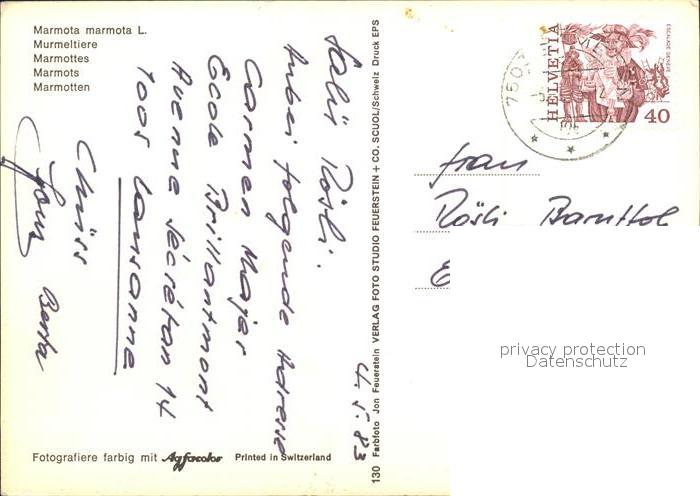 Marmota marmota L.
Murmeltiere
Marmottes
Marmots
Marmotten
Salü Rösli.
Anbei folgende Adresse
Carmen Majer
Ecole Brillantmont
Avenue Sécrétan 14
1005 Lausanne
Chüss
Berta
4.5.83
Fotografiere farbig mit Agfacolor Printed in Switzerland
130 Farbfoto Jon Feuerstein VERLAG FOTO STUDIO FEUERSTEIN + CO. SCUOL/Schweiz Druck EPS
HELVETIA
ESCALADE GENÈVE
40
Frau
Rösli
privacy protection
Datenschutz